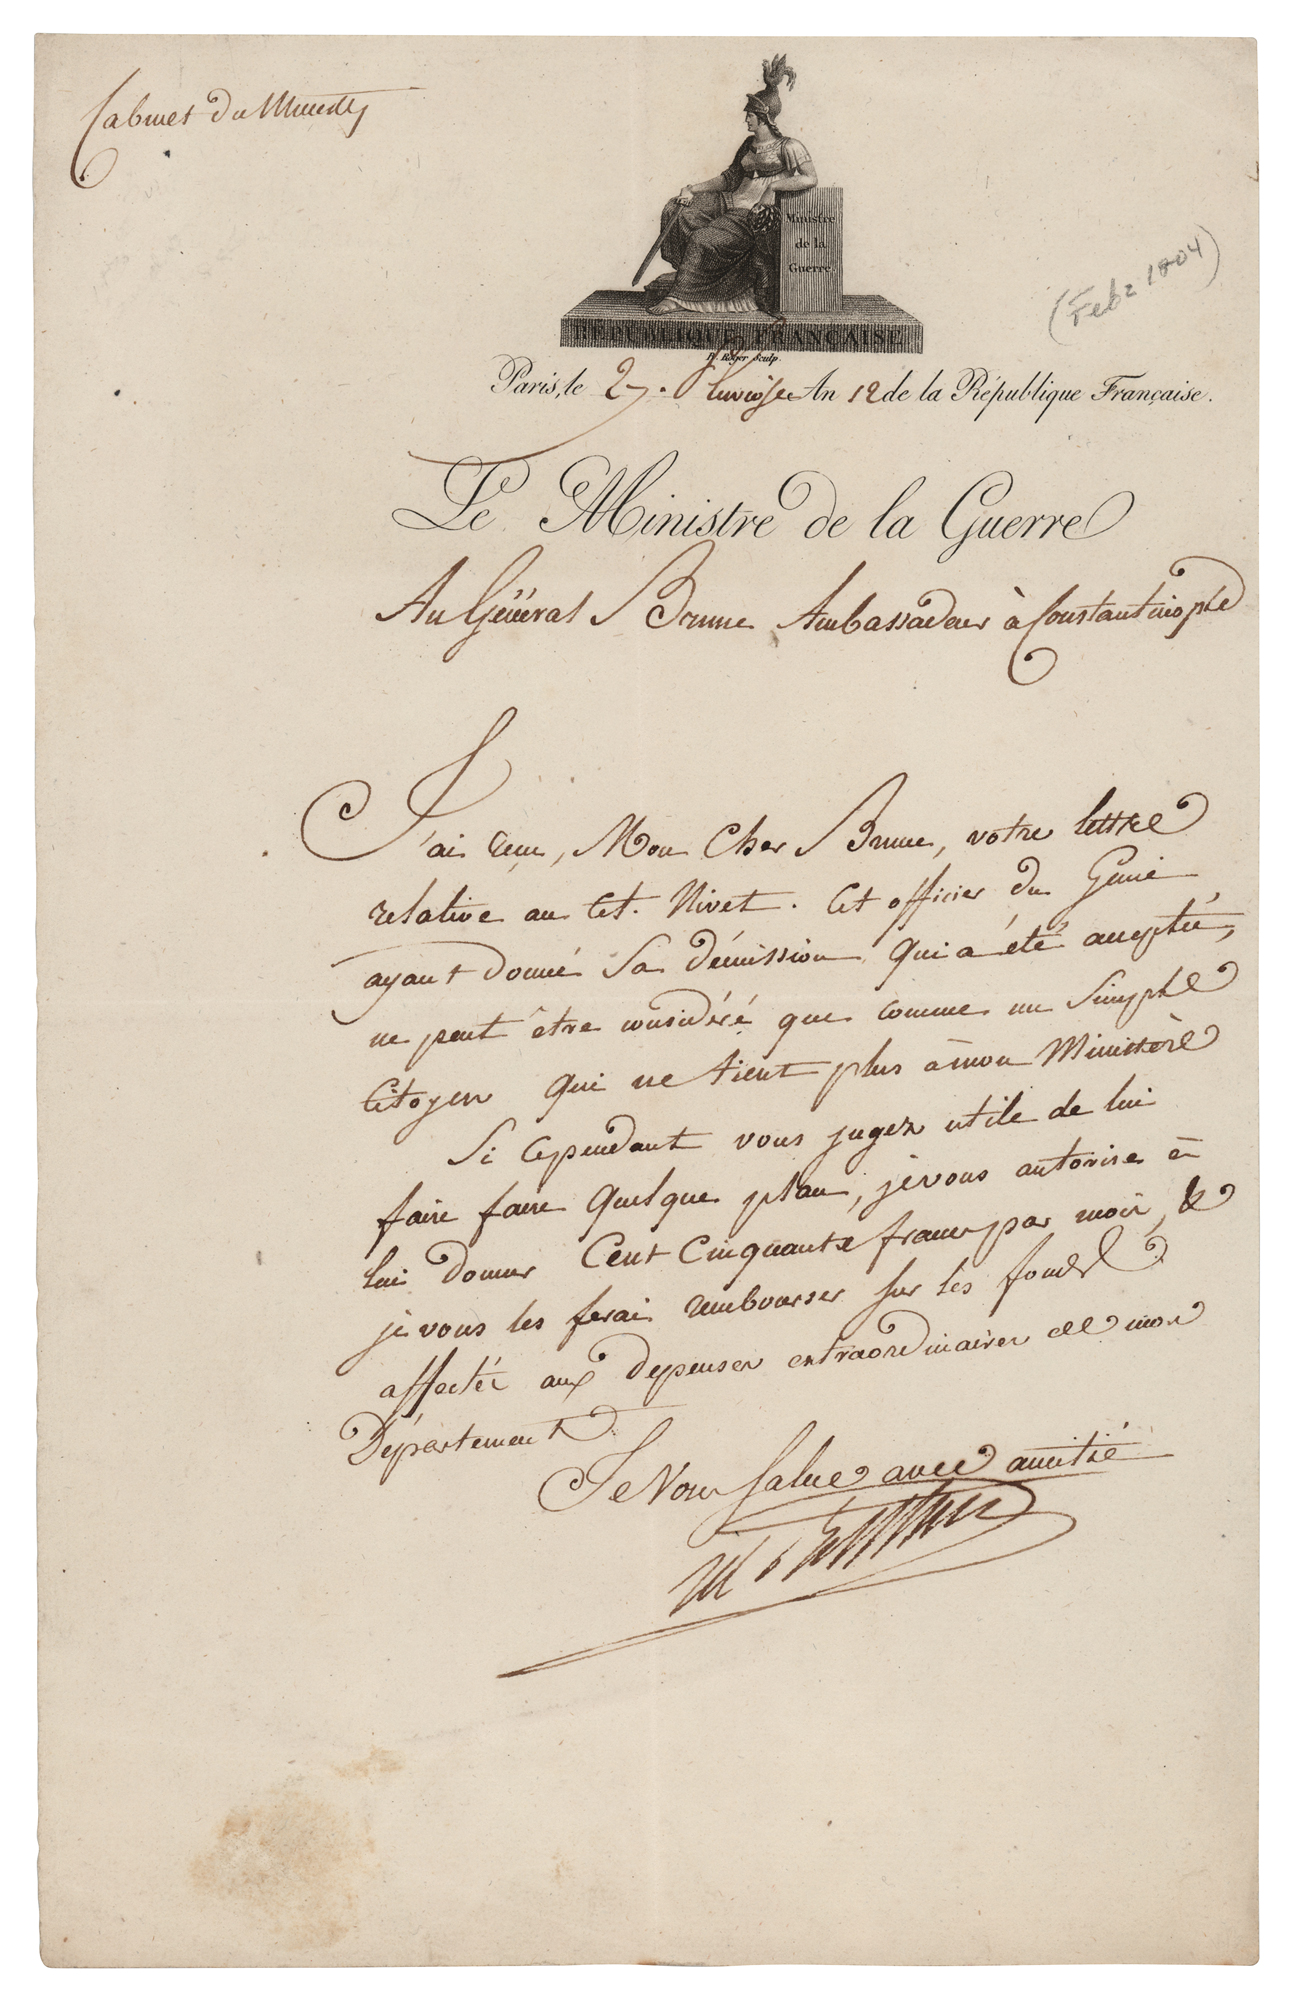 Cabinet du Ministre
Ministre
de la
Guerre
RÉPUBLIQUE FRANÇAISE
B. Roger Sculp.
(Feb 2 1804)
Paris, le 27. Pluviôse An 12 de la République Française.
Le Ministre de la Guerre
Au Général Brune Ambassadeur à Constantinople
J'ai reçu, Mon Cher Brune, votre lettre
relative au Cit. Nivet. Cet officier du Génie
ayant donné sa démission qui a été acceptée,
ne peut être considéré que comme un simple
Citoyen qui ne tient plus à mon Ministère
Si cependant vous jugez utile de lui
faire faire quelque plan, je vous autorise à
lui donner Cent Cinquante francs par mois, &
je vous les ferai rembourser sur les fonds
affectés aux dépenses extraordinaires de mon
Département.
Je Vous salue avec amitié